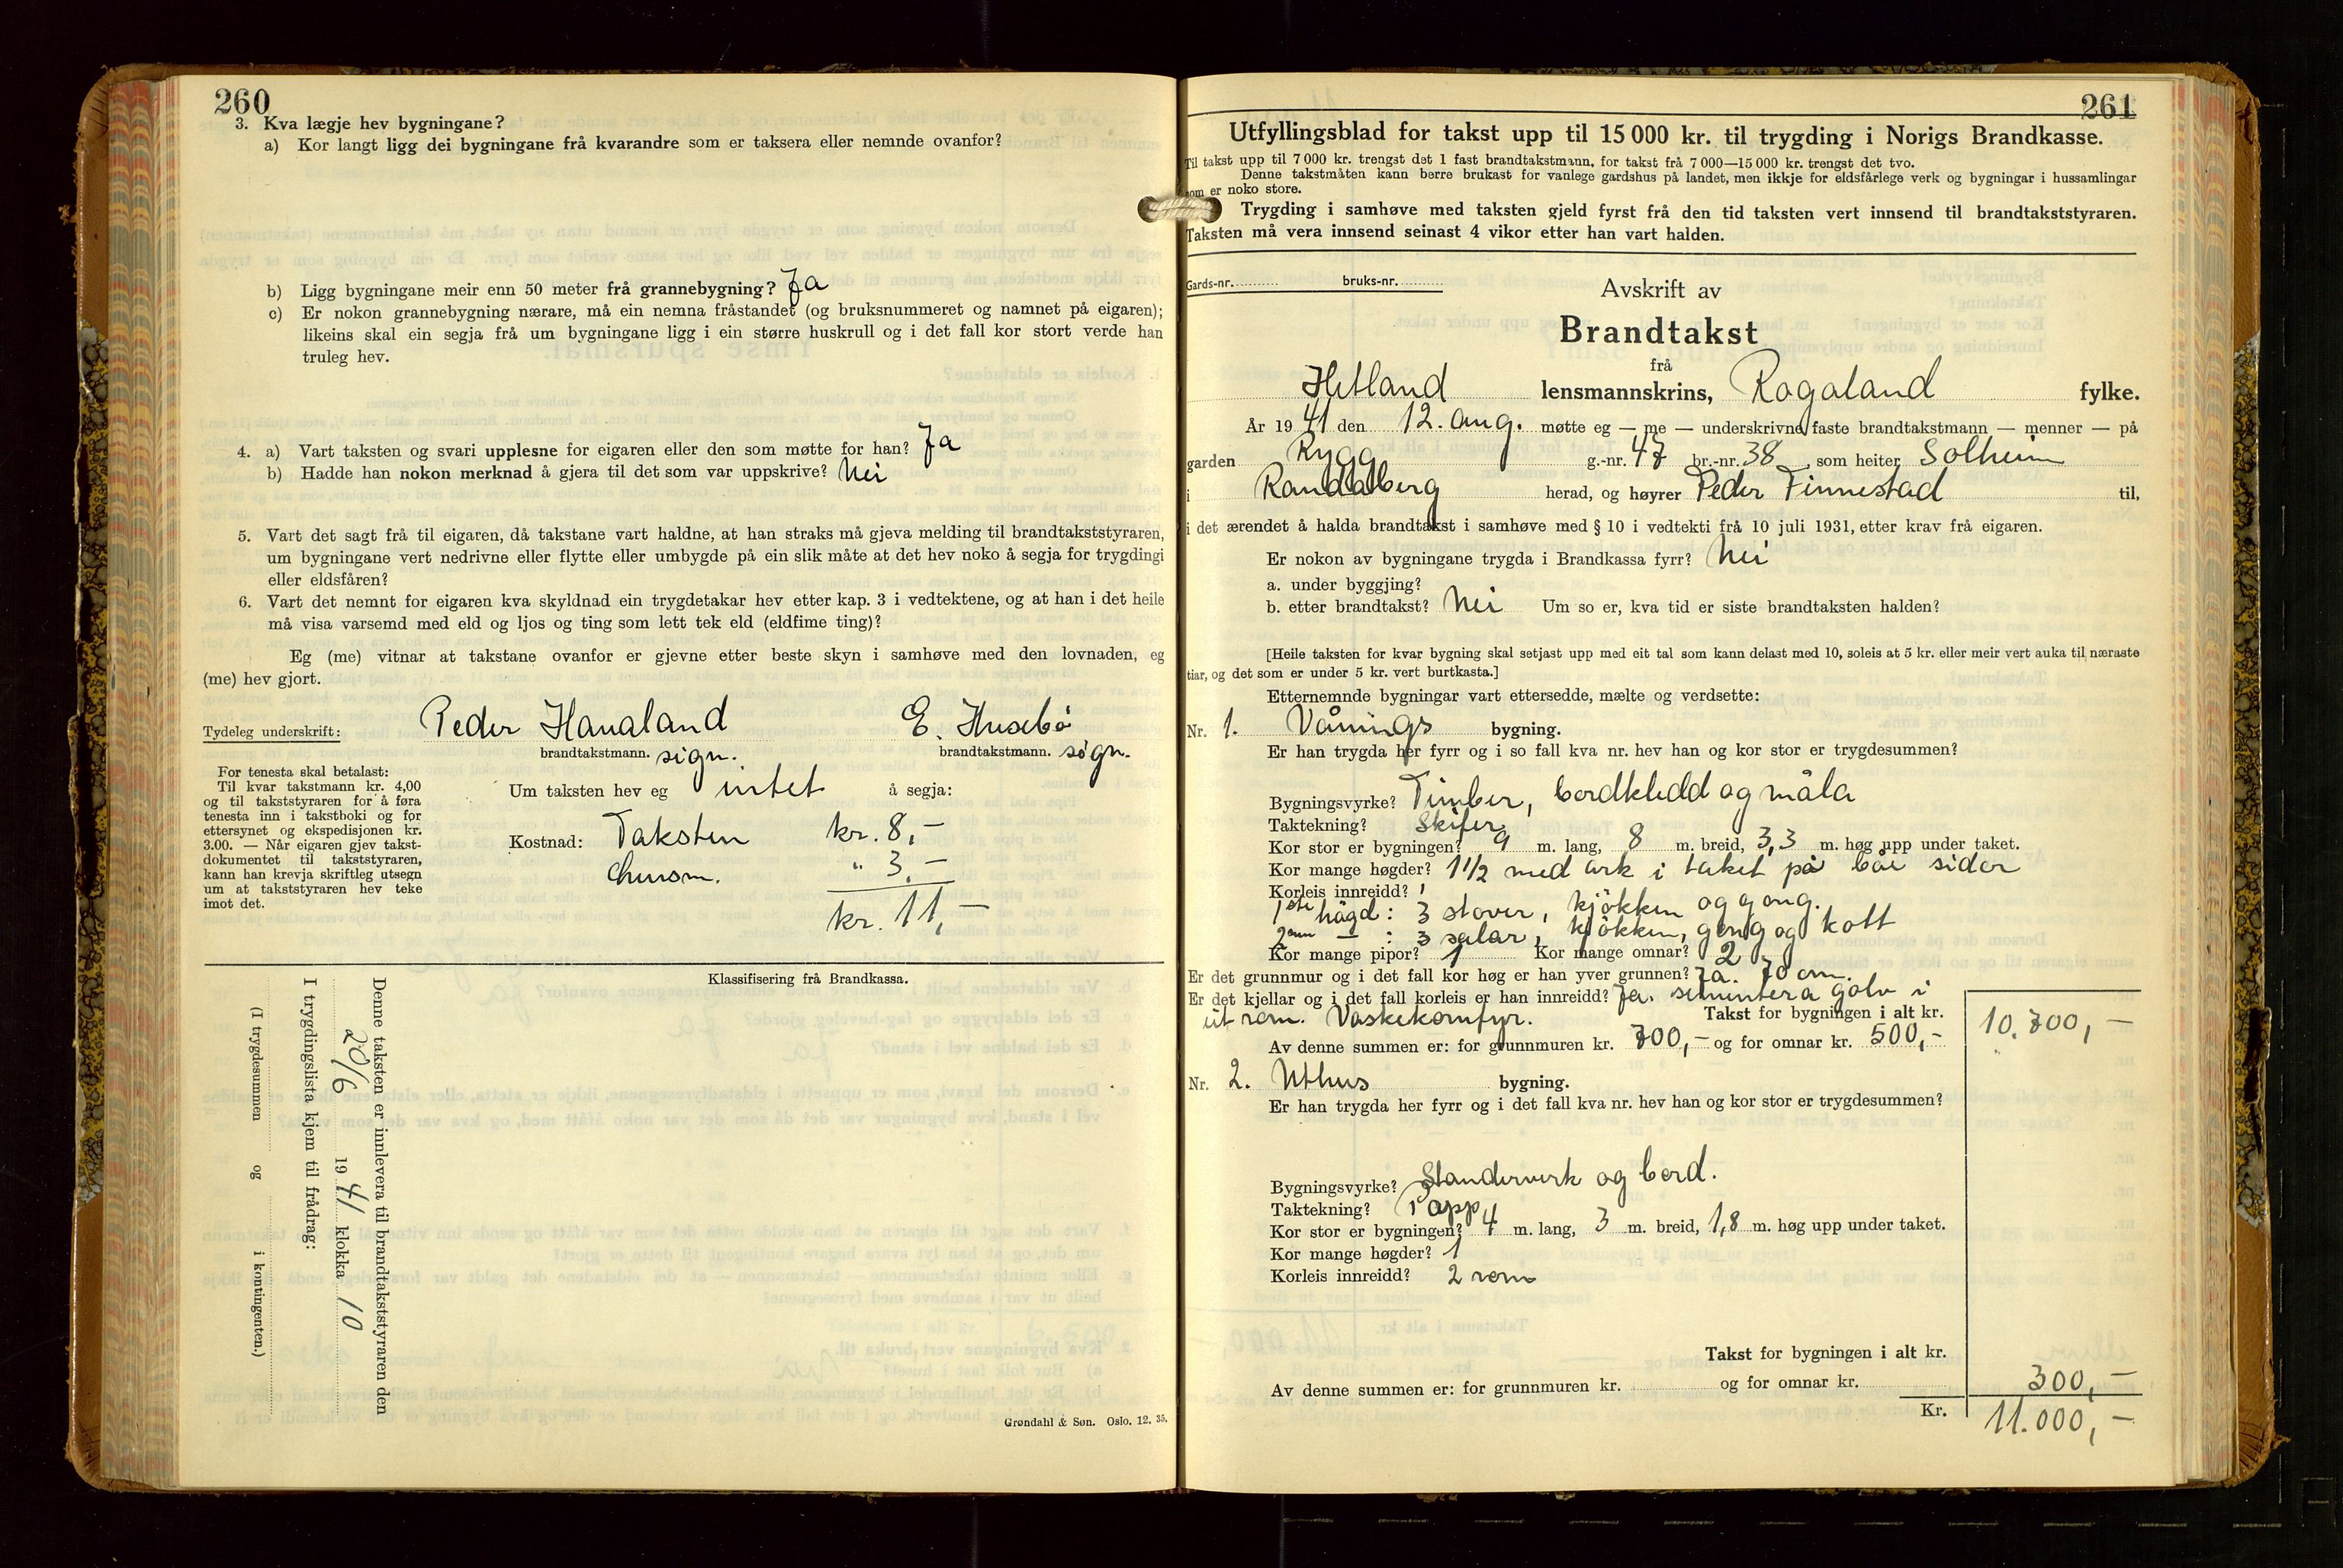 260
3. Kva lægje hev bygningane?
a) Kor langt ligg dei bygningane frå kvarandre som er taksera eller nemnde ovanfor?
b) Ligg bygningane meir enn 50 meter frå grannebygning? Ja
c) Er nokon grannebygning nærare, må ein nemna fråstandet (og bruksnummeret og namnet på eigaren);
likeins skal ein segja frå um bygningane ligg i ein større huskrull og i det fall kor stort verde han
truleg hev.
4. a) Vart taksten og svari upplesne for eigaren eller den som møtte for han? Ja
b) Hadde han nokon merknad å gjera til det som var uppskrive? Nei
5. Vart det sagt frå til eigaren, då takstane vart haldne, at han straks må gjeva melding til brandtakststyraren,
um bygningane vert nedrivne eller flytte eller umbygde på ein slik måte at det hev noko å segja for trygdingi
eller eldsfåren?
6. Vart det nemnt for eigaren kva skyldnad ein trygdetakar hev etter kap. 3 i vedtektene, og at han i det heile
må visa varsemd med eld og ljos og ting som lett tek eld (eldfime ting)?
Eg (me) vitnar at takstane ovanfor er gjevne etter beste skyn i samhøve med den lovnaden, eg
(me) hev gjort.
Tydeleg underskrift: Peder Haualand E. Husebø
brandtakstmann. sign. brandtakstmann. sign.
For tenesta skal betalast:
Til kvar takstmann kr. 4,00
og til takststyraren for å føra
tenesta inn i takstboki og for
ettersynet og ekspedisjonen kr.
3.00. — Når eigaren gjev takst-
dokumentet til takststyraren,
kann han krevja skriftleg utsegn
um at takststyraren hev teke
imot det.
Um taksten hev eg intet å segja:
Kostnad: Taksten kr. 8,-
" 3,-
kr. 11,-
Klassifisering frå Brandkassa.
Denne taksten er innlevera til brandtakststyraren den
20/6 1941 klokka 10
I trygdingslista kjem til frådrag:
(I trygdesummen og i kontingenten.)
Grøndahl & Søn. Oslo. 12. 35.
261
Utfyllingsblad for takst upp til 15 000 kr. til trygding i Norigs Brandkasse.
Til takst upp til 7 000 kr. trengst det 1 fast brandtakstmann, for takst frå 7 000—15 000 kr. trengst det tvo.
Denne takstmåten kann berre brukast for vanlege gardshus på landet, men ikkje for eldsfårlege verk og bygningar i hussamlingar
som er noko store.
Trygding i samhøve med taksten gjeld fyrst frå den tid taksten vert innsend til brandtakststyraren.
Taksten må vera innsend seinast 4 vikor etter han vart halden.
Gards-nr. bruks-nr.
Avskrift av
Brandtakst
frå
Hetland lensmannskrins, Rogaland fylke.
År 1941 den 12. aug. møtte eg — me — underskrivne faste brandtakstmann — menner — på
garden Rygg g.-nr. 47 br.-nr. 38 som heiter Solheim
i Randaberg herad, og høyrer Peder Finnestad til,
i det ærendet å halda brandtakst i samhøve med § 10 i vedtekti frå 10 juli 1931, etter krav frå eigaren.
Er nokon av bygningane trygda i Brandkassa fyrr? Nei
a. under byggjing?
b. etter brandtakst? Nei Um so er, kva tid er siste brandtaksten halden?
[Heile taksten for kvar bygning skal setjast upp med eit tal som kann delast med 10, soleis at 5 kr. eller meir vert auka til næraste
tiar, og det som er under 5 kr. vert burtkasta.]
Etternemnde bygningar vart ettersedde, mælte og verdsette:
Nr. 1. Vånings bygning.
Er han trygda her fyrr og i so fall kva nr. hev han og kor stor er trygdesummen?
Bygningsvyrke? Timber, bordkledd og måla
Taktekning? Skifer
Kor stor er bygningen? 9 m. lang, 8 m. breid, 3,3 m. høg upp under taket.
Kor mange høgder? 1½ med ark i taket på båe sidor
Korleis innreidd?
1ste høgd: 3 stover, kjøkken og gong.
2enn — : 3 salar, kjøkken, gong og kott
Kor mange pipor? 1 Kor mange omnar? 2
Er det grunnmur og i det fall kor høg er han yver grunnen? Ja. 70 cm.
Er det kjellar og i det fall korleis er han innreidd? Ja. sementera golv i
eit rom. Vaskekomfyr. Takst for bygningen i alt kr. 10.700,-
Av denne summen er: for grunnmuren kr. 700,- og for omnar kr. 500,-
Nr. 2. Uthus bygning.
Er han trygda her fyrr og i det fall kva nr. hev han og kor stor er trygdesummen?
Bygningsvyrke? Standerverk og bord.
Taktekning? Papp
Kor stor er bygningen? 4 m. lang, 3 m. breid, 1,8 m. høg upp under taket.
Kor mange høgder? 1
Korleis innreidd? 2 rom
Takst for bygningen i alt kr.
Av denne summen er: for grunnmuren kr. og for omnar kr. 300,-
Kr. 11.000,-